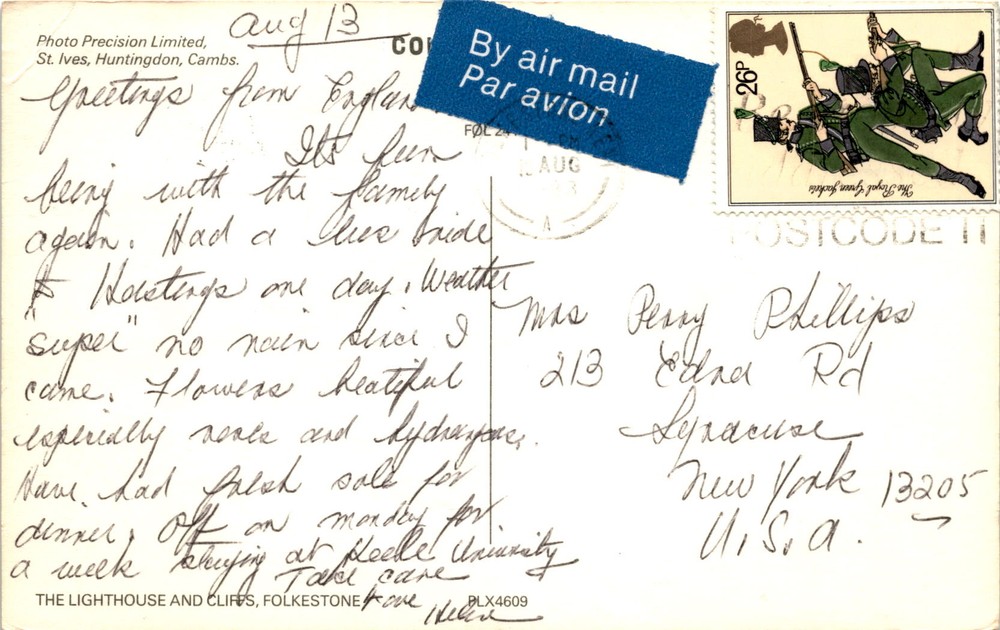 Aug 13
Photo Precision Limited,
St. Ives, Huntingdon, Cambs.
Greetings from England
Its fun
being with the family
again. Had a bus ride
to Hastings one day. Weather
"super" no rain since I
came. Flowers beatiful
especially roses and hydrangeas.
Have had fresh sole for
dinner. Off on monday for
a week staying at Keele University
Take care
Love
Helen
THE LIGHTHOUSE AND CLIFFS, FOLKESTONE
PLX4609
By air mail
Par avion
AUG
A
26P
The Royal Green Jackets
POSTCODE IT
Mrs Perry Phillips
213 Edna Rd
Syracuse
New York 13205
U.S.A.